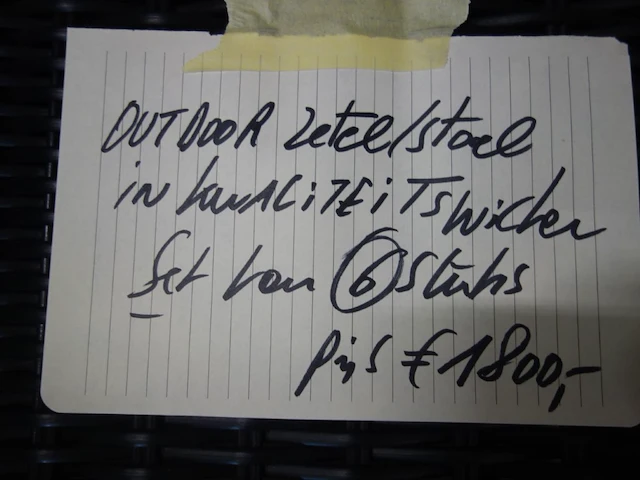 OUTDOOR Zetel/stoel
IN KWALiTEiTSWicker
Set van 6 stuks
prijs € 1800,-